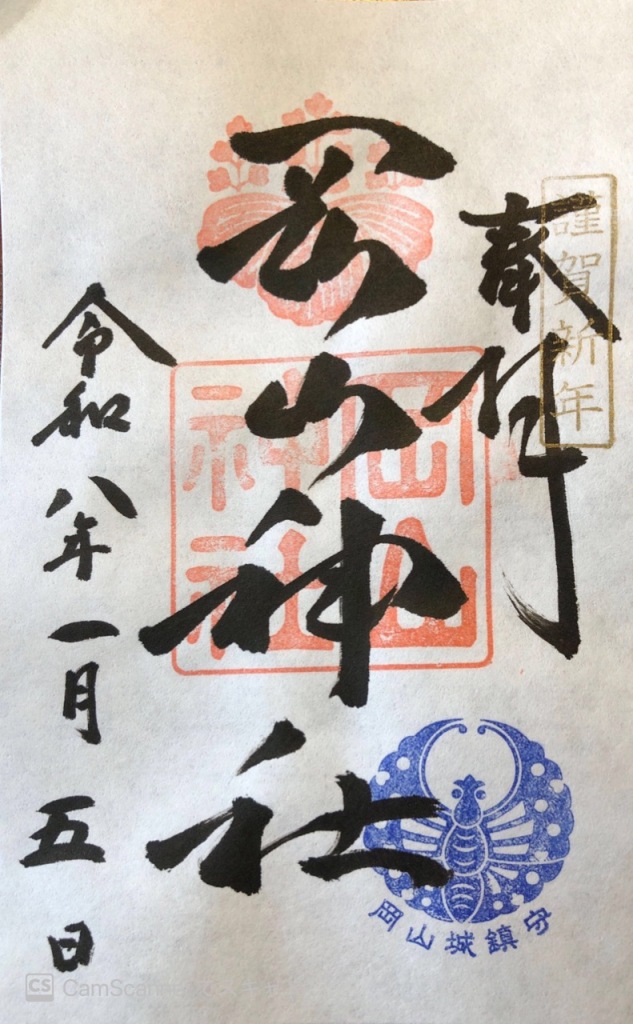 謹賀新年
奉拝
岡山神社
岡山神社
岡山城鎮守
令和八年一月五日
CS CamScanner